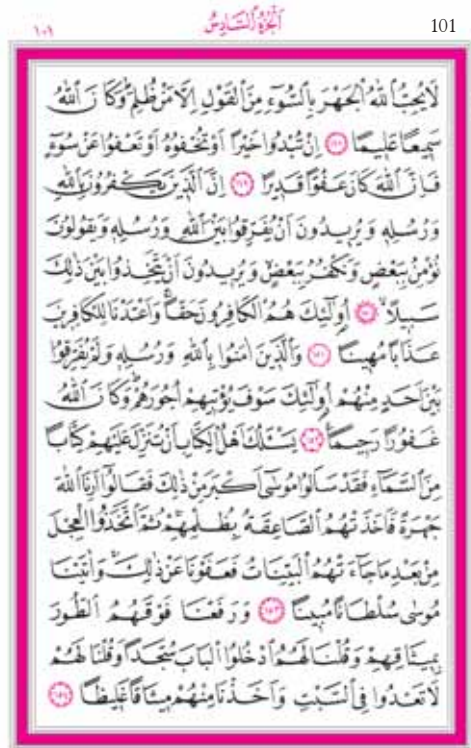 ١٠١ اَلْجُزْءُ السَّادِسُ 101
لَا يُحِبُّ اللّٰهُ الْجَهْرَ بِالسُّوٓءِ مِنَ الْقَوْلِ اِلَّا مَنْ ظُلِمَۜ وَكَانَ اللّٰهُ
سَمِيعًا عَلِيمًا ﴿١٤٨﴾ اِنْ تُبْدُوا خَيْرًا اَوْ تُخْفُوهُ اَوْ تَعْفُوا عَنْ سُوٓءٍ
فَاِنَّ اللّٰهَ كَانَ عَفُوًّا قَدِيرًا ﴿١٤٩﴾ اِنَّ الَّذِينَ يَكْفُرُونَ بِاللّٰهِ
وَرُسُلِهِ وَيُرِيدُونَ اَنْ يُفَرِّقُوا بَيْنَ اللّٰهِ وَرُسُلِهِ وَيَقُولُونَ
نُؤْمِنُ بِبَعْضٍ وَنَكْفُرُ بِبَعْضٍ وَيُرِيدُونَ اَنْ يَتَّخِذُوا بَيْنَ ذٰلِكَ
سَبِيلًا ﴿١٥٠﴾ اُو۬لٰٓئِكَ هُمُ الْكَافِرُونَ حَقًّا وَاَعْتَدْنَا لِلْكَافِرِينَ
عَذَابًا مُهِينًا ﴿١٥١﴾ وَالَّذِينَ اٰمَنُوا بِاللّٰهِ وَرُسُلِهِ وَلَمْ يُفَرِّقُوا
بَيْنَ اَحَدٍ مِنْهُمْ اُو۬لٰٓئِكَ سَوْفَ يُؤْتِيهِمْ اُجُورَهُمْۜ وَكَانَ اللّٰهُ
غَفُورًا رَحِيمًا ﴿١٥٢﴾ يَسْـَٔلُكَ اَهْلُ الْكِتَابِ اَنْ تُنَزِّلَ عَلَيْهِمْ كِتَابًا
مِنَ السَّمَٓاءِ فَقَدْ سَاَلُوا مُوسٰٓى اَكْبَرَ مِنْ ذٰلِكَ فَقَالُٓوا اَرِنَا اللّٰهَ
جَهْرَةً فَاَخَذَتْهُمُ الصَّاعِقَةُ بِظُلْمِهِمْ ثُمَّ اتَّخَذُوا الْعِجْلَ
مِنْ بَعْدِ مَا جَٓاءَتْهُمُ الْبَيِّنَاتُ فَعَفَوْنَا عَنْ ذٰلِكَ وَاٰتَيْنَا
مُوسٰى سُلْطَانًا مُبِينًا ﴿١٥٣﴾ وَرَفَعْنَا فَوْقَهُمُ الطُّورَ
بِمِيثَاقِهِمْ وَقُلْنَا لَهُمُ ادْخُلُوا الْبَابَ سُجَّدًا وَقُلْنَا لَهُمْ
لَا تَعْدُوا فِي السَّبْتِ وَاَخَذْنَا مِنْهُمْ مِيثَاقًا غَلِيظًا ﴿١٥٤﴾